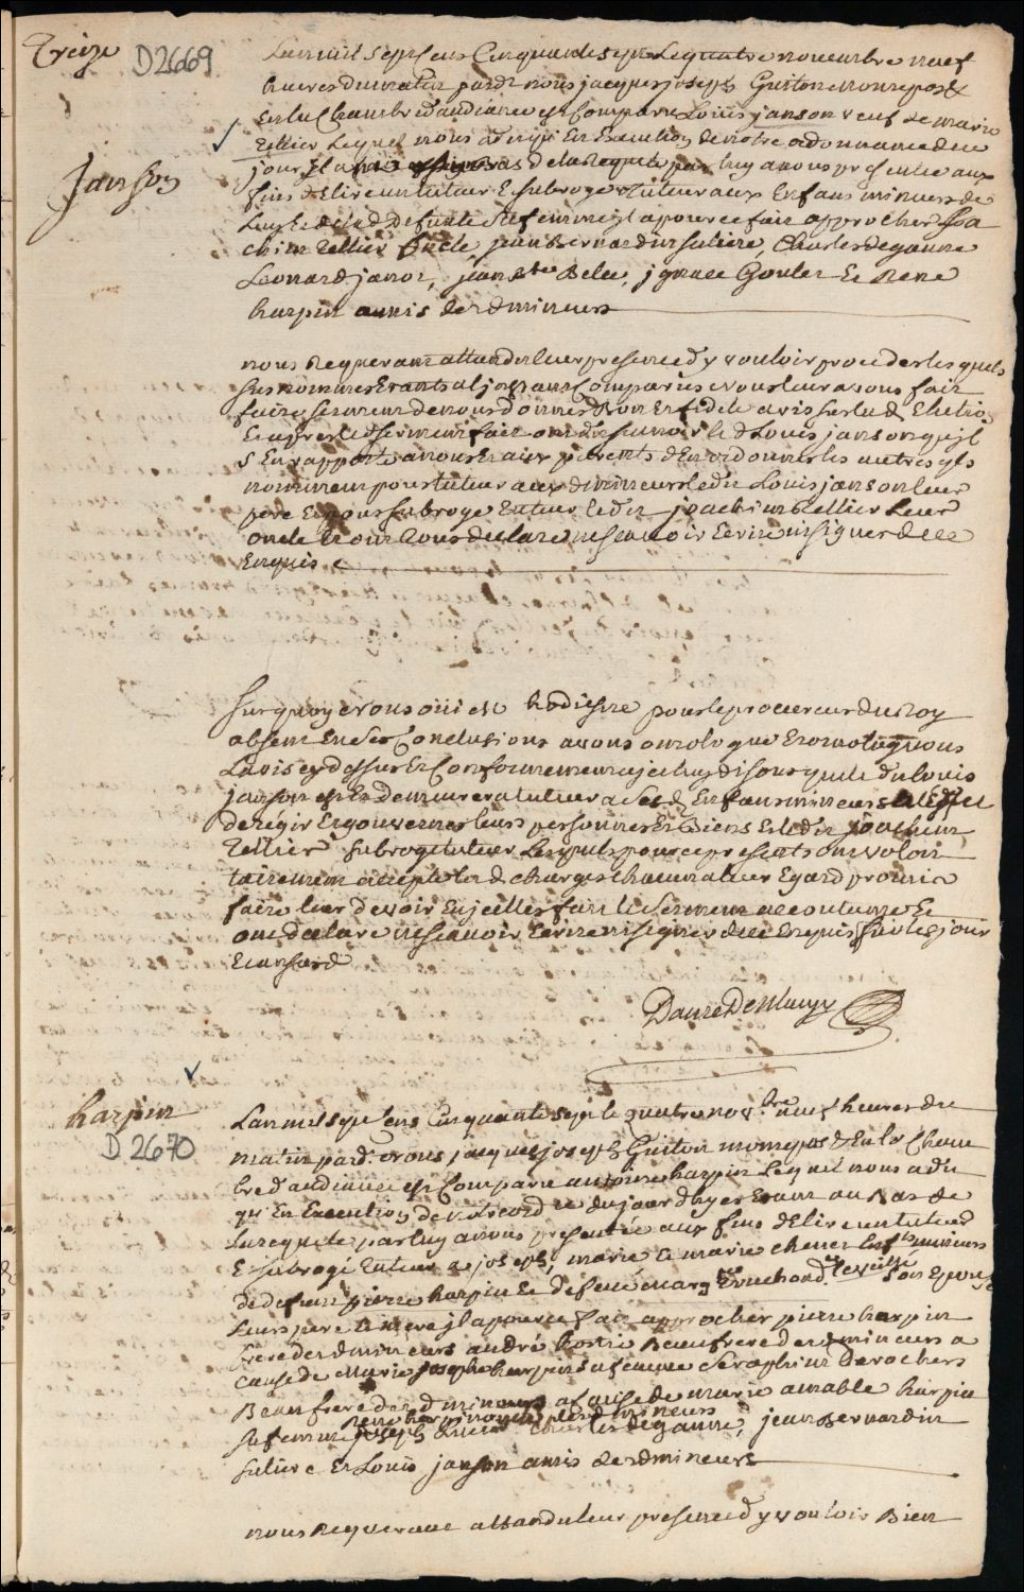 Treize
D2669
Lan mil sept cens Cinquante sept Le quatre novembre neuf
heures du matin pardt nous jacques joseph Guiton monrepos &
En la Chambre d'audiance est Comparu Louis janson veuf de marie
Tellier Lequel nous a dit qu'En Execution de notre ordonnance de ce
Janson
jour Et a nous au bas de la Requete par luy a nous presentée aux
fins d'Elire un tuteur Et subroge tuteur aux Enfans mineurs de
Luy Et de lad deffunte sa femme jl a pour ce fait approcher Joa
chim Tellier Oncle, jean Bernardin suliere, Charles deganne
Leonard janot, jean Bte Belee, jgnace Goulet Et Rene
harpin amis desd mineurs
nous Requerant attendu leur presence d'y vouloir proceder lesquels
susnommés Etants aljours aux Comparus nous leur avons fait
faire serment de nous donner Bon Et fidele avis sur lad Election
Et apres led serment fait ont dit scavoir le d Louis janson qu'jl
s'En rapporte a nous Et aux parents d'En ordonner les autres qu'jls
nomment pour tuteur auxd mineurs led Louis janson leur
pere Et pour subroge tuteur led joachim tellier Leur
oncle Et ont tous declaré ne scavoir Ecrire ni signer de ce
Enquis
Sur quoy nous oüi Me hodiesne pour le procureur du Roy
absent En ses Conclusions avons omologué Et omologuons
Lavis cy dessus Et Conformement a jceluy disons que le d Louis
janson est Et demeurera tuteur a sesd Enfans mineurs a l'Effet
de regir Et gouverner leurs personnes Et Biens Et led joachim
Tellier subrogé tuteur Lesquels pour ce presents ont volon
tairement accepté lesd charges chacun a leur Egard promis
faire leur devoir En jcelles fait le serment accoutumé Et
ont declaré ne scavoir Ecrire ni signer de ce Enquis fait les jour
Et an susd
Danré De Blanzy
harpin
D 2670
Lan mil sept cens Cinquante sept le quatre novbre neuf heures du
matin pardt nous jacques joseph Guiton monrepos & En la Cham
bre d'audiance est Comparu antoine harpin Lequel nous a dit
qu'En Execution de notre ord ce du jour d'hyer Etant au Bas de
La requete par luy a nous presentée aux fins d'Elire un tuteur
Et subrogé tuteur a joseph, marie Et marie chenet Enfts mineurs
de deffunt pierre harpin Et deffunte marg son Epouse
Leurs pere Et mere jl a pour ce fait approcher pierre harpin
frere desd mineurs andré hostie Beaufrere desd mineurs a
Cause de marie josephe harpin sa femme Seraphim Derochers
Beau frere desd mineurs a cause de marie amable harpin
Rene harpin oncle desd mineurs
sa femme joseph Charles deganne, jean Bernardin
suliere Et Louis janson amis desd mineurs
nous Requerant attendu leur presence d'y vouloir Bien